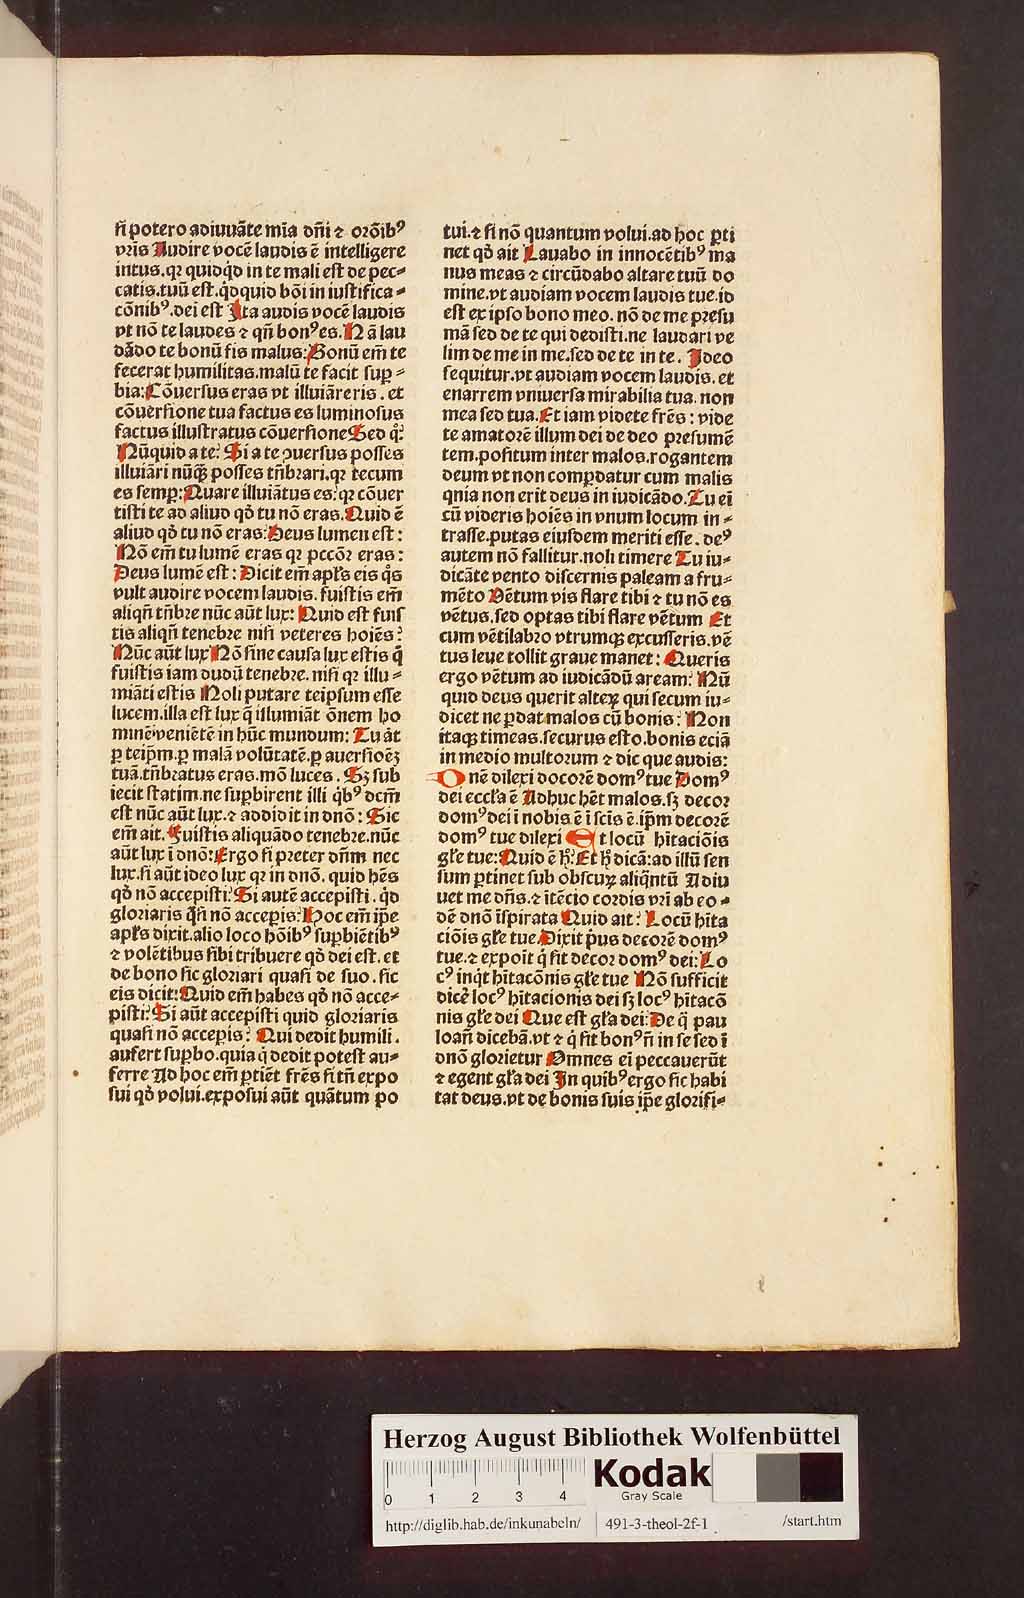 ſi potero adiuuāte mīa dn̄i ⁊ orōibꝰ
vr̄is Audire vocē laudis ē intelligere
intus.qꝛ quidq̇d in te mali eſt de pec⸗
catis.tuū eſt.q̇dquid bōi in iuſtifica⸗
cōnibꝰ.dei eſt Ita audis vocē laudis
vt nō te laudes ⁊ qn̄ bonꝰ es. Nā lau
dādo te bonū fis malus: Bonū em̄ te
fecerat humilitas.malū te facit ſuꝑ⸗
bia: Cōuerſus eras vt illuīareris. et
cōuerſione tua factus es luminoſus
factus illuſtratus cōuerſione Sed q̊:
Nūquid a te: Si a te ꝯuerſus poſſes
illuīari nūqꝫ poſſes tn̄brari.qꝛ tecum
es ſemꝑ: Quare illuīatus es: qꝛ cōuer
tiſti te ad aliud qd̓ tu nō eras. Quid ē
aliud qd̓ tu nō eras: Deus lumen eſt:
Nō em̄ tu lumē eras qꝛ pccōꝛ eras:
Deus lumē eſt: Dicit em̄ apl̓s eis q̊s
vult audire vocem laudis. fuiſtis em̄
aliqn̄ tn̄bre nūc aūt lux: Quid eſt fuiſ
tis aliqn̄ tenebre niſi veteres hoiēs:
Nūc aūt lux Nō ſine cauſa lux eſtis q̄
fuiſtis iam dudū tenebre. niſi qꝛ illu⸗
miāti eſtis Noli putare teipſum eſſe
lucem.illa eſt lux q̄ illumiāt ōnem ho
minē veniētē in hūc mundum: Tu āt
ꝑ teip̄m.ꝑ malā volūtatē.ꝑ auerſioēꝫ
tuā.tn̄bratus eras.mō luces. Sꝫ ſub
iecit ſtatim.ne ſuꝑbirent illi q̇bꝰ dcm̄
eſt nūc aūt lux.⁊ addidit in dnō: Sic
em̄ ait. Fuiſtis aliquādo tenebre.nūc
aūt lux ī dnō: Ergo ſi preter dn̄m nec
lux.ſi aūt ideo lux qꝛ in dnō. quid hēs
qd̓ nō accepiſti: Si autē accepiſti. q̇d
gloriaris q̄ſi nō acceꝑis: Hoc em̄ ip̄e
apl̓s dixit.alio loco hōibꝰ ſuꝑbiētibꝰ
⁊ volētibus ſibi tribuere qd̓ dei eſt. et
de bono ſic gloriari quaſi de ſuo. ſic
eis dicit: Quid em̄ habes qd̓ nō acce⸗
piſti: Si aūt accepiſti quid gloriaris
quaſi nō acceꝑis: Qui dedit humili.
aufert ſuꝑbo.quia q̇ dedit poteſt au⸗
ferre Ad hoc em̄ ꝑtiēt fr̄es ſi tn̄ expo
ſui qd̓ volui.expoſui aūt quātum po
tui.⁊ ſi nō quantum volui.ad hoc ꝑti
net qd̓ ait Lauabo in innocētibꝰ ma
nus meas ⁊ circūdabo altare tuū do
mine.vt audiam vocem laudis tue.id
eſt ex ipſo bono meo. nō de me preſu
mā ſed de te qui dediſti.ne laudari ve
lim de me in me.ſed de te in te. Ideo
ſequitur.vt audiam vocem laudis. et
enarrem vniuerſa mirabilia tua. non
mea ſed tua. Et iam videte fr̄es: vide
te amatorē illum dei de deo preſumē
tem.poſitum inter malos.rogantem
deum vt non comꝑdatur cum malis
qnia non erit deus in iudicādo. Tu eī
cū videris hoiēs in vnum locum in⸗
traſſe.putas eiuſdem meriti eſſe. deꝰ
autem nō fallitur.noli timere Tu iu⸗
dicāte vento diſcernis paleam a fru⸗
mēto Vētum vis flare tibi ⁊ tu nō es
vētus.ſed optas tibi flare vētum Et
cum vētilabro vtrumqꝫ excuſſeris.vē
tus leue tollit graue manet: Queris
ergo vētum ad iudicādū aream: Nū
quid deus querit alteꝝ qui ſecum iu⸗
dicet ne ꝑdat malos cū bonis: Non
itaqꝫ timeas.ſecurus eſto.bonis eciā
in medio multorum ⁊ dic que audis:
Dn̄e dilexi decorē domꝰ tue Domꝰ
dei eccl̓a ē Adhuc hēt malos.ſꝫ decor
domꝰ dei ī nobis ē ī ſcīs ē.ip̄m decorē
domꝰ tue dilexi Et locū hītaciōis
gl̓e tue: Quid ē ꝧ: Et ꝧ dicā: ad illū ſen
ſum ꝑtinet ſub obſcuꝝ aliq̄ntū Adiu
uet me dn̄s.⁊ ītēcio cordis vr̄i ab eo⸗
dē dnō īſpirata Quid ait: Locū hīta
ciōis gl̓e tue Dixit p̄us decorē domꝰ
tue.⁊ expoīt q̇ ſit decor domꝰ dei: Lo
cꝰ inq̇t hītacōnis gl̓e tue Nō ſufficit
dicē locꝰ hītacionis dei ſꝫ locꝰ hītacō
nis gl̓e dei Que eſt gl̓a dei: De q̄ pau
loan̄ dicebā.vt ⁊ q̇ ſit bonꝰ n̄ in ſe ſed ī
dnō glorietur Omnes eī peccauerūt
⁊ egent gl̓a dei In quibꝰ ergo ſic habi
tat deus.vt de bonis ſuis ip̄e glorifi⸗
Herzog August Bibliothek Wolfenbüttel
0 1 2 3 4
Kodak
Gray Scale
http://diglib.hab.de/inkunabeln/ 491-3-theol-2f-1 /start.htm